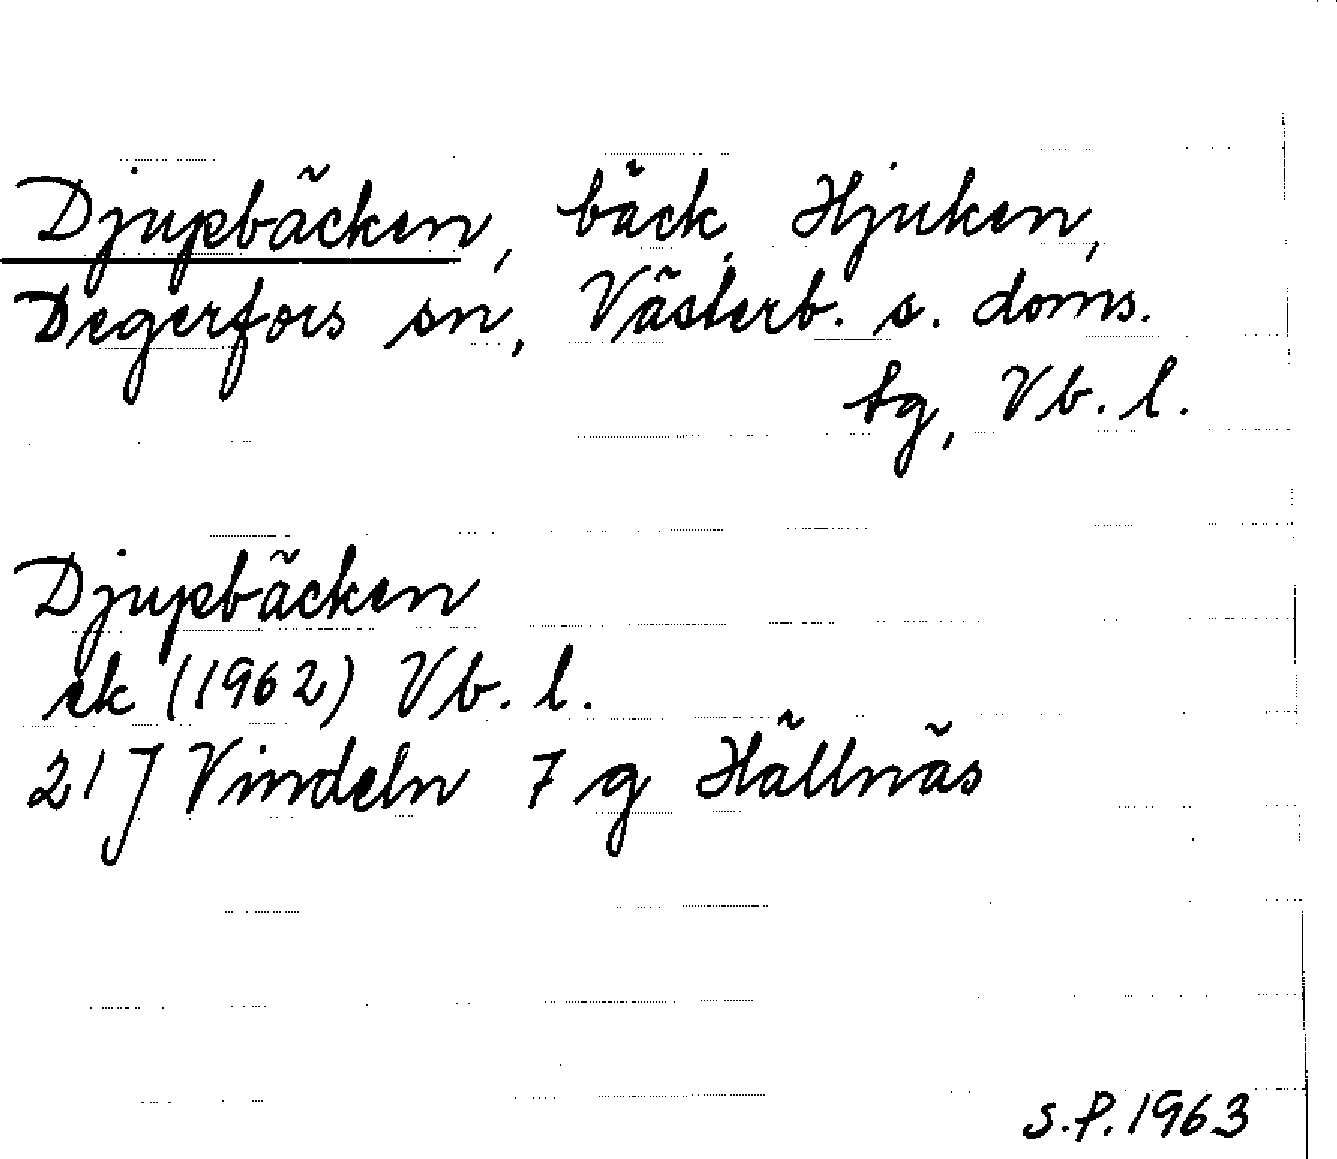 Djupbäcken, bäck, Hjuken,
Degerfors sn, Västerb. s. doms.
tg, Vb. l.
Djupbäcken
ek (1962) Vb. l.
21 J Vindeln 7 g Hällnäs
S.P. 1963